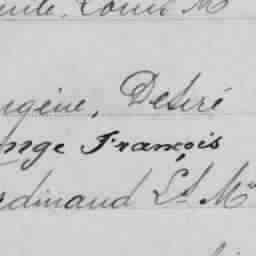 Louis M
ugène, Desiré
nge François
rdinand Lt. Mie